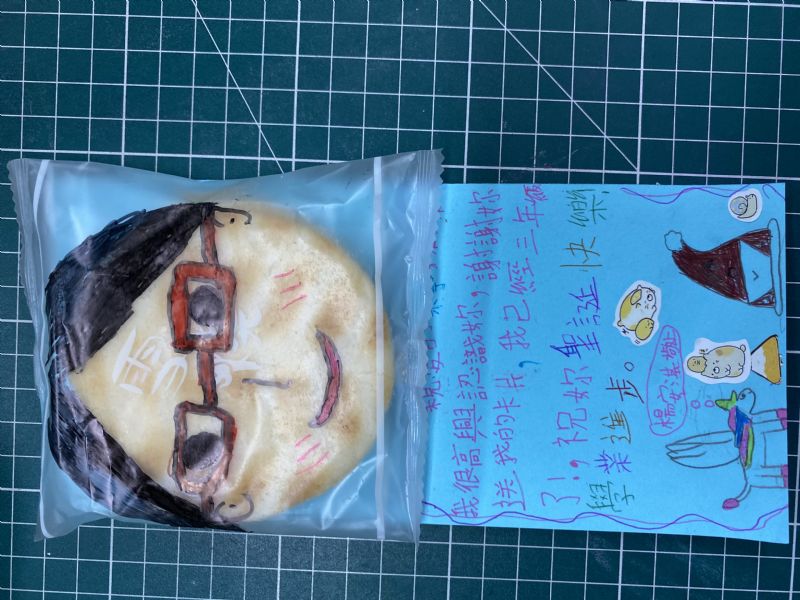 雪
我很高興認識妳,謝謝妳
送我的卡片,我已經三年級
了!,祝妳聖誕快樂,
學業進步。
楊安淇